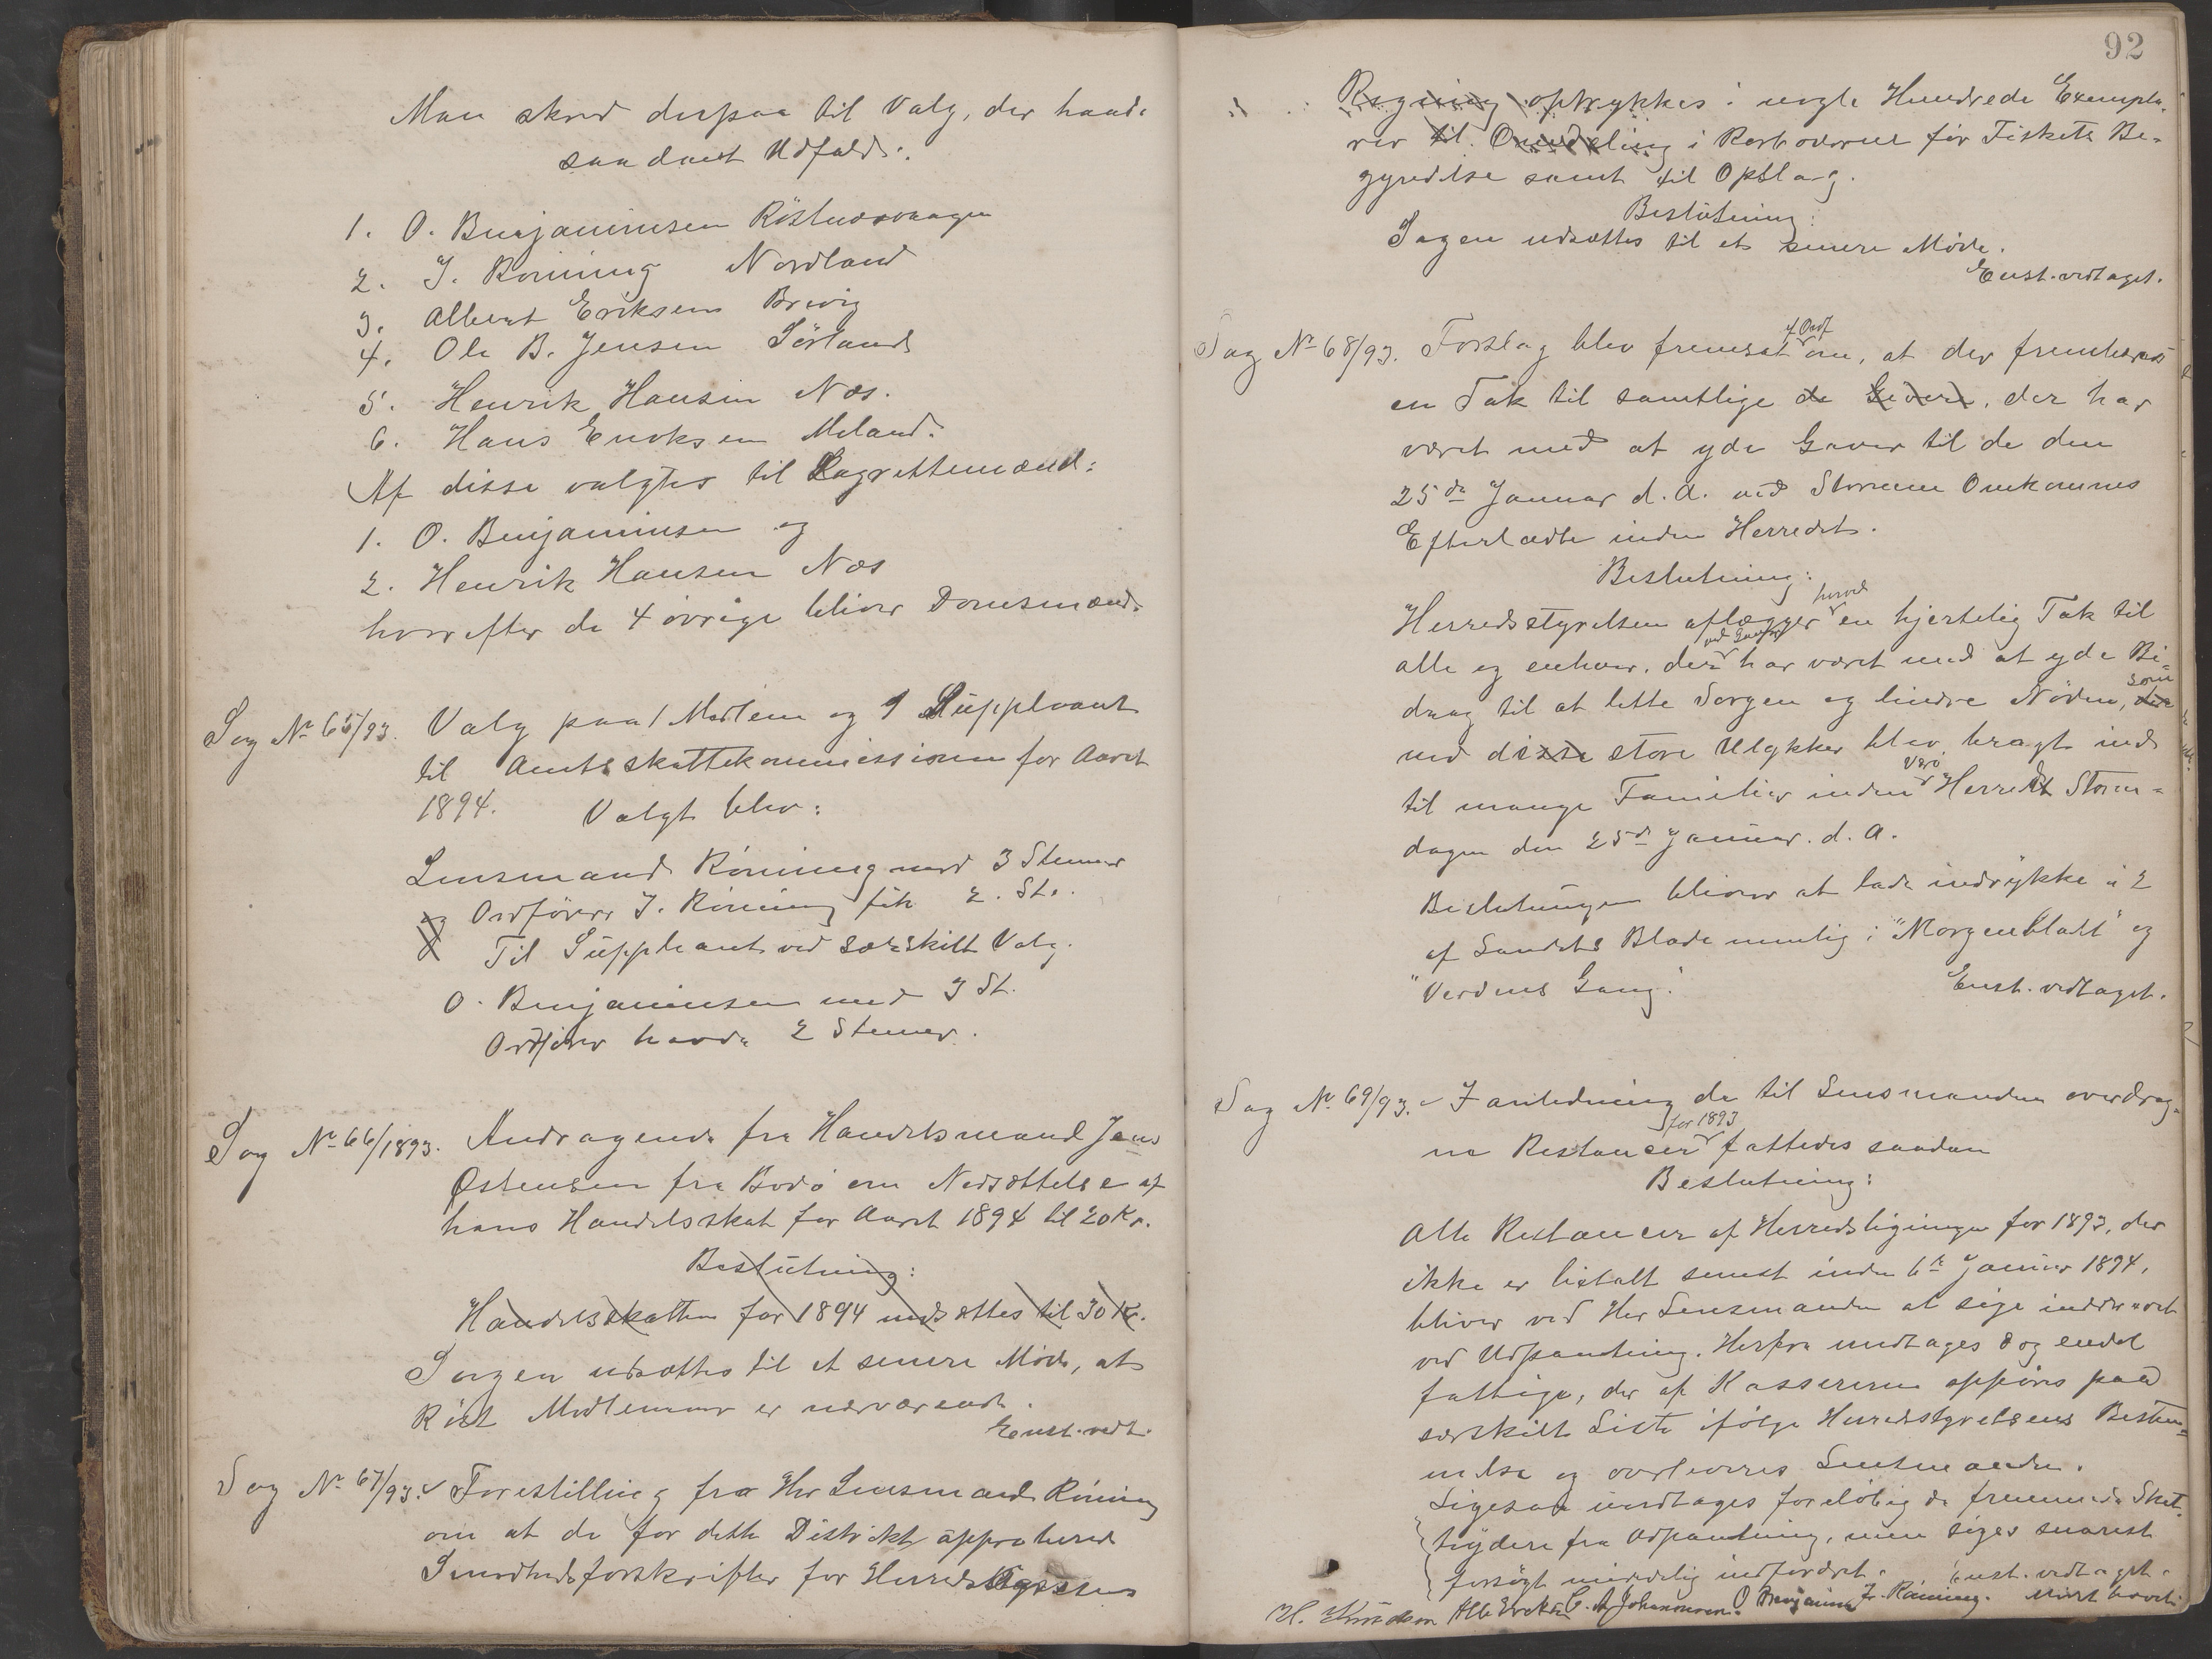 Man skred derpaa til Valg, der havde
saadant Udfald:
1. O. Benjaminsen Röstnæsvaagen
2. J. Rönning Nordland
3. Albert Eriksen Brevig
4. Ole B. Jensen Sörland
5. Henrik Hansen Næs.
6. Hans Enoksen Måland.
Af disse valgtes til Lagrettemænd:
1. O. Benjaminsen og
2. Henrik Hansen Næs
hvorefter de 4 övrige bliver Domsmænd.
Sag No 65/93. Valg paa 1 Medlem og 1 Suppleant
til Amtsskattekommissionen for Aaret
1894. Valgt blev:
Lensmand Rönning med 3 Stemmer
og Ordförer J. Rönning fik 2. St.
Til Suppleant ved særskilt Valg.
O. Benjaminsen med 3 St.
Ordförer havde 2 Stemmer.
Sag No 66/1893. Andragende fra Handelsmand Jens
Østensen fra Bodö om Nedsættelse af
hans Handelsskat for Aaret 1894 til 20 Kr.
Beslutning:
Handelsskatten for 1894 nedsættes til 30 Kr.
Sagen udsættes til et senere Möde, at
Röst Medlemmer er nærværende.
Enst. vedt.
Sag No 67/93. Forestilling fra Hr Lensmand Rönning
om at de for dette Distrikt approberede
Sundhedsforskrifter for Herreds
92
Regning optrykkes i nogle Hundrede Exempla-
rer til Omdeling i Rorboderne för Fiskets Be-
gyndelse samt til Opslag.
Beslutning:
Sagen udsættes til et senere Möde.
Enst. vedtaget.
af Ordf
Sag No 68/93. Forslag blev fremsat om, at der frembæres
en Tak til samtlige de Givere, der har
været med at yde Gaver til de den
25de Januar d. A. ved Stormen Omkomnes
Efterladte inden Herredet.
Beslutning:
herved
Herredsstyrelsen aflægger en hjertelig Tak til
ved Gaver
alle og enhver, der har været med at yde Bi-
som
drag til at lette Sorgen og lindre Nöden, der
ved disse store Ulykker blev bragt ind
Værö
til mange Familier inden Herred Storm-
dagen den 25de Januar d. A.
Beslutningen bliver at lade indrykke i 2
af Landets Blade nemlig i "Morgenbladet" og
"Verdens Gang". Enst. vedtaget.
Sag No 69/93. I anledning de til Lensmanden overdrag-
for 1893
ne Restancer fattedes saadan
Beslutning:
Alle Restancer af Herredsligningen for 1893, der
ikke er betalt senest inden 6te Januar 1894,
bliver ved Her Lensmanden at söge inddrevet
ved Udpantning. Herfra undtages dog endel
fattige, der af Kassereren opföres paa
særskilt Liste ifölge Herredsstyrelsens Bestem-
melse og overleveres Lensmanden.
Ligesaa undtages forelöbig de fremmede Skat-
tydere fra Udpantning, men söges snarest
forsögt mindelig indfordret. Enst. vedtaget.
Mödet hævet.
H. Knudsen Alb Eriksen C. A Johannesen. O Benjaminsen J. Rönning.